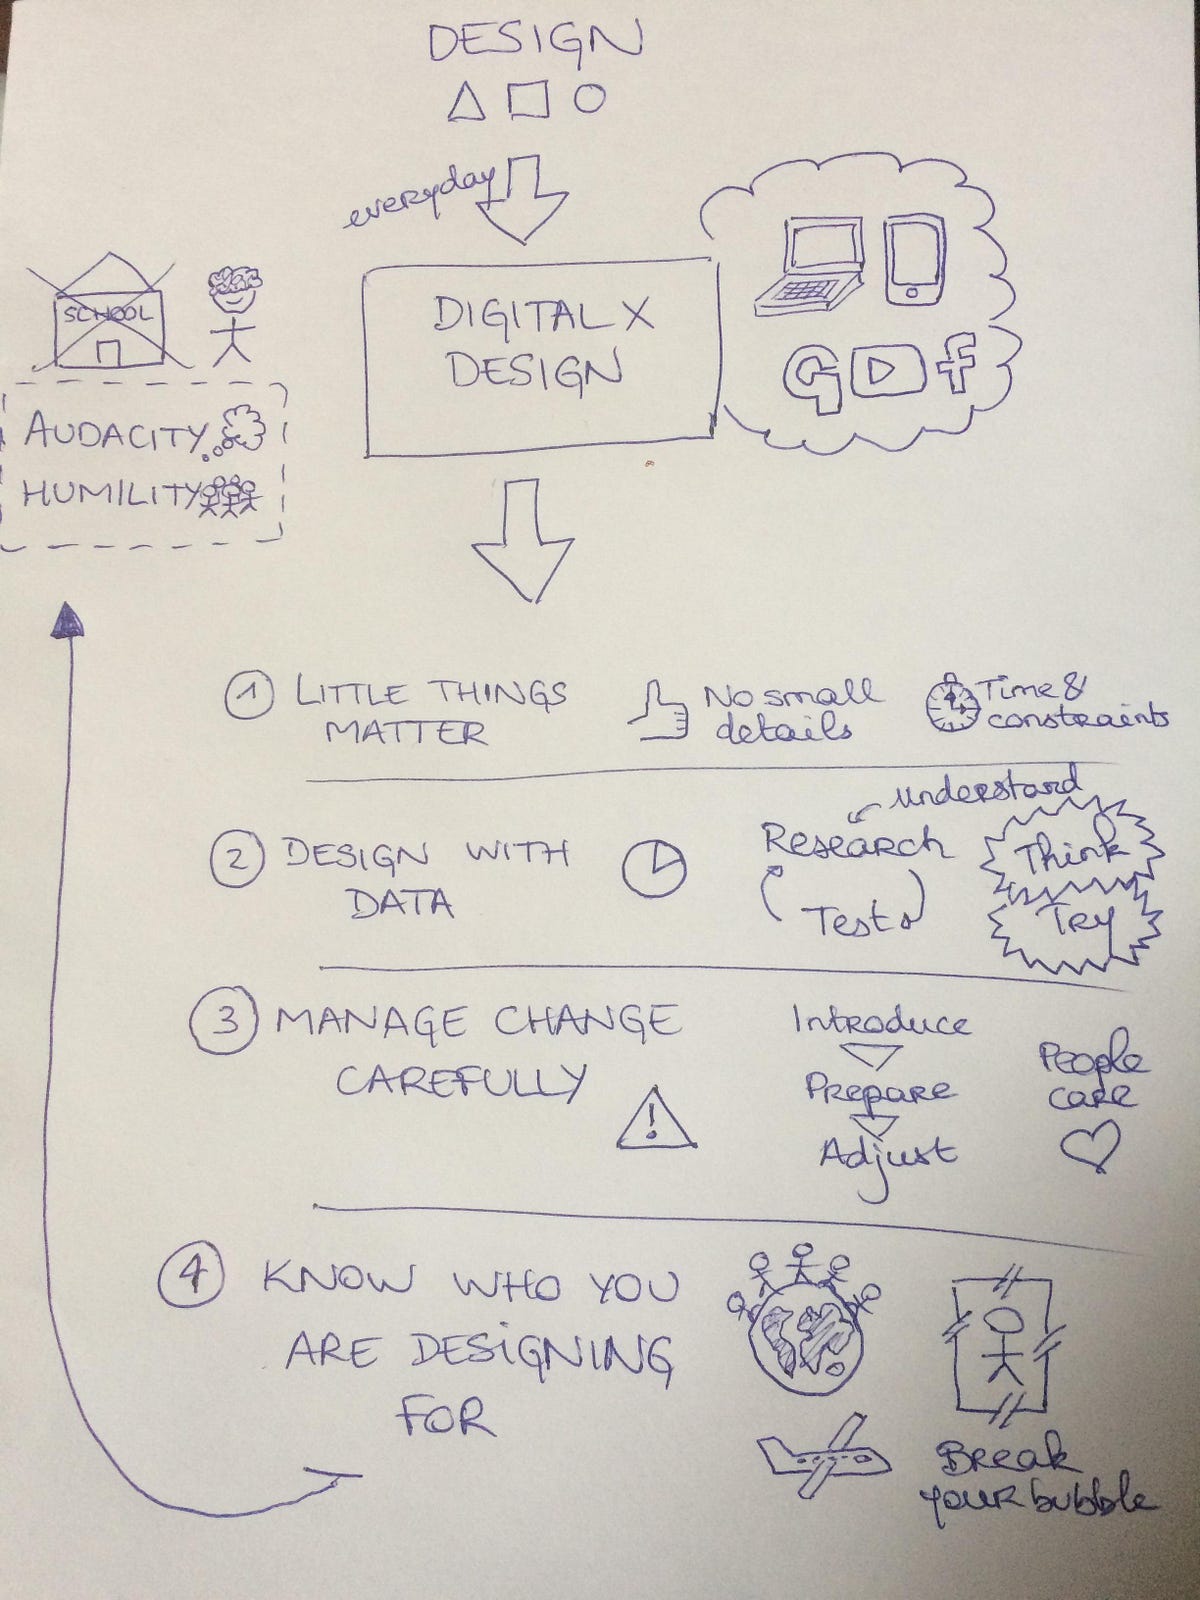 DESIGN
everyday
DIGITAL X
DESIGN
G f
SCHOOL
AUDACITY
HUMILITY
1 LITTLE THINGS
MATTER
No small
details
Time &
constraints
2 DESIGN WITH
DATA
understand
Research
Test
Think
Try
3 MANAGE CHANGE
CAREFULLY
!
Introduce
Prepare
Adjust
People
care
4 KNOW WHO YOU
ARE DESiGNING
FOR
Break
your bubble